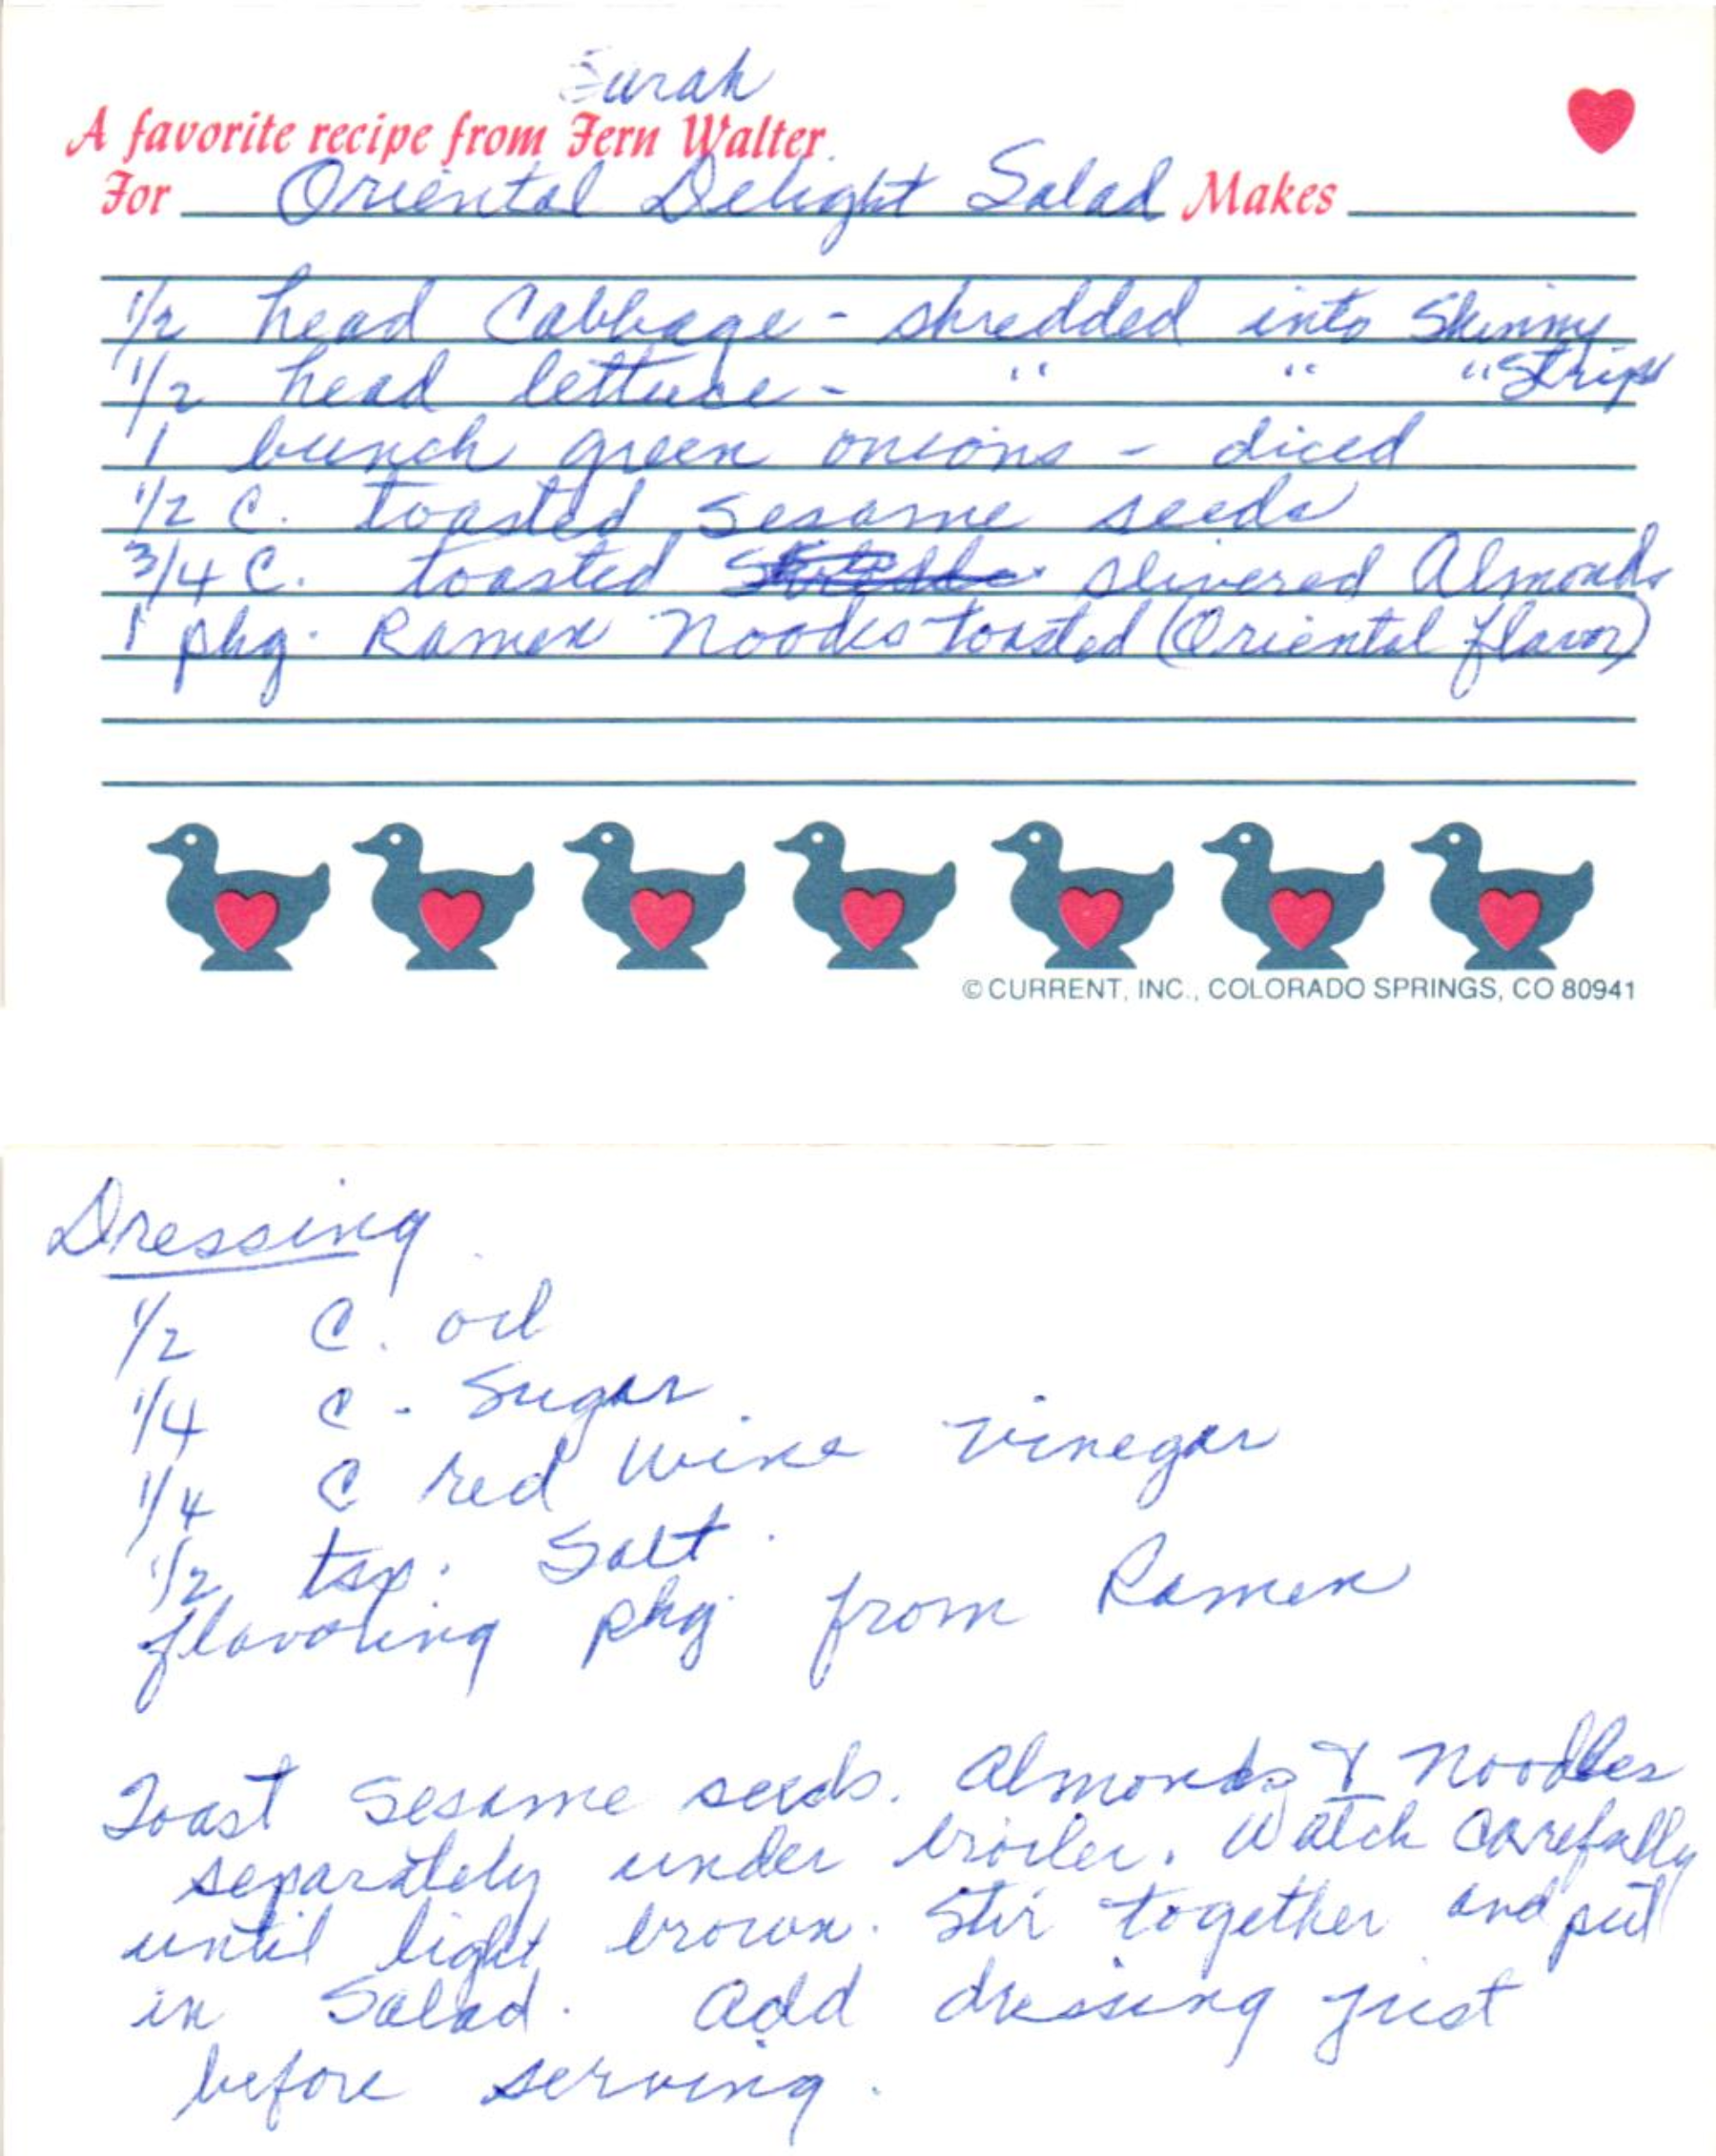 Sarah
A favorite recipe from Fern Walter
For Oriental Delight Salad Makes
1/2 head Cabbage - shredded into Skinny
1/2 head lettuce - " " " Strips
1 bunch green onions - diced
1/2 C. toasted sesame seeds
3/4 C. toasted slivered Almonds
1 pkg. Ramen Noodles toasted (Oriental flavor)
© CURRENT, INC., COLORADO SPRINGS, CO 80941
Dressing
1/2 C. oil
1/4 C. Sugar
1/4 C red wine vinegar
1/2 tsp. Salt
flavoring pkg. from Ramen
Toast sesame seeds. Almonds & Noodles
separately under broiler. Watch carefully
until light brown. Stir together and put
in Salad. Add dressing just
before serving.